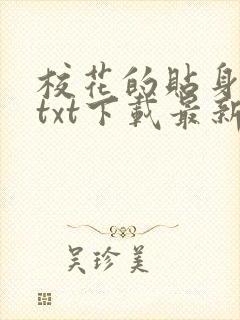 校花的贴身
txt下载最新
吴珍美